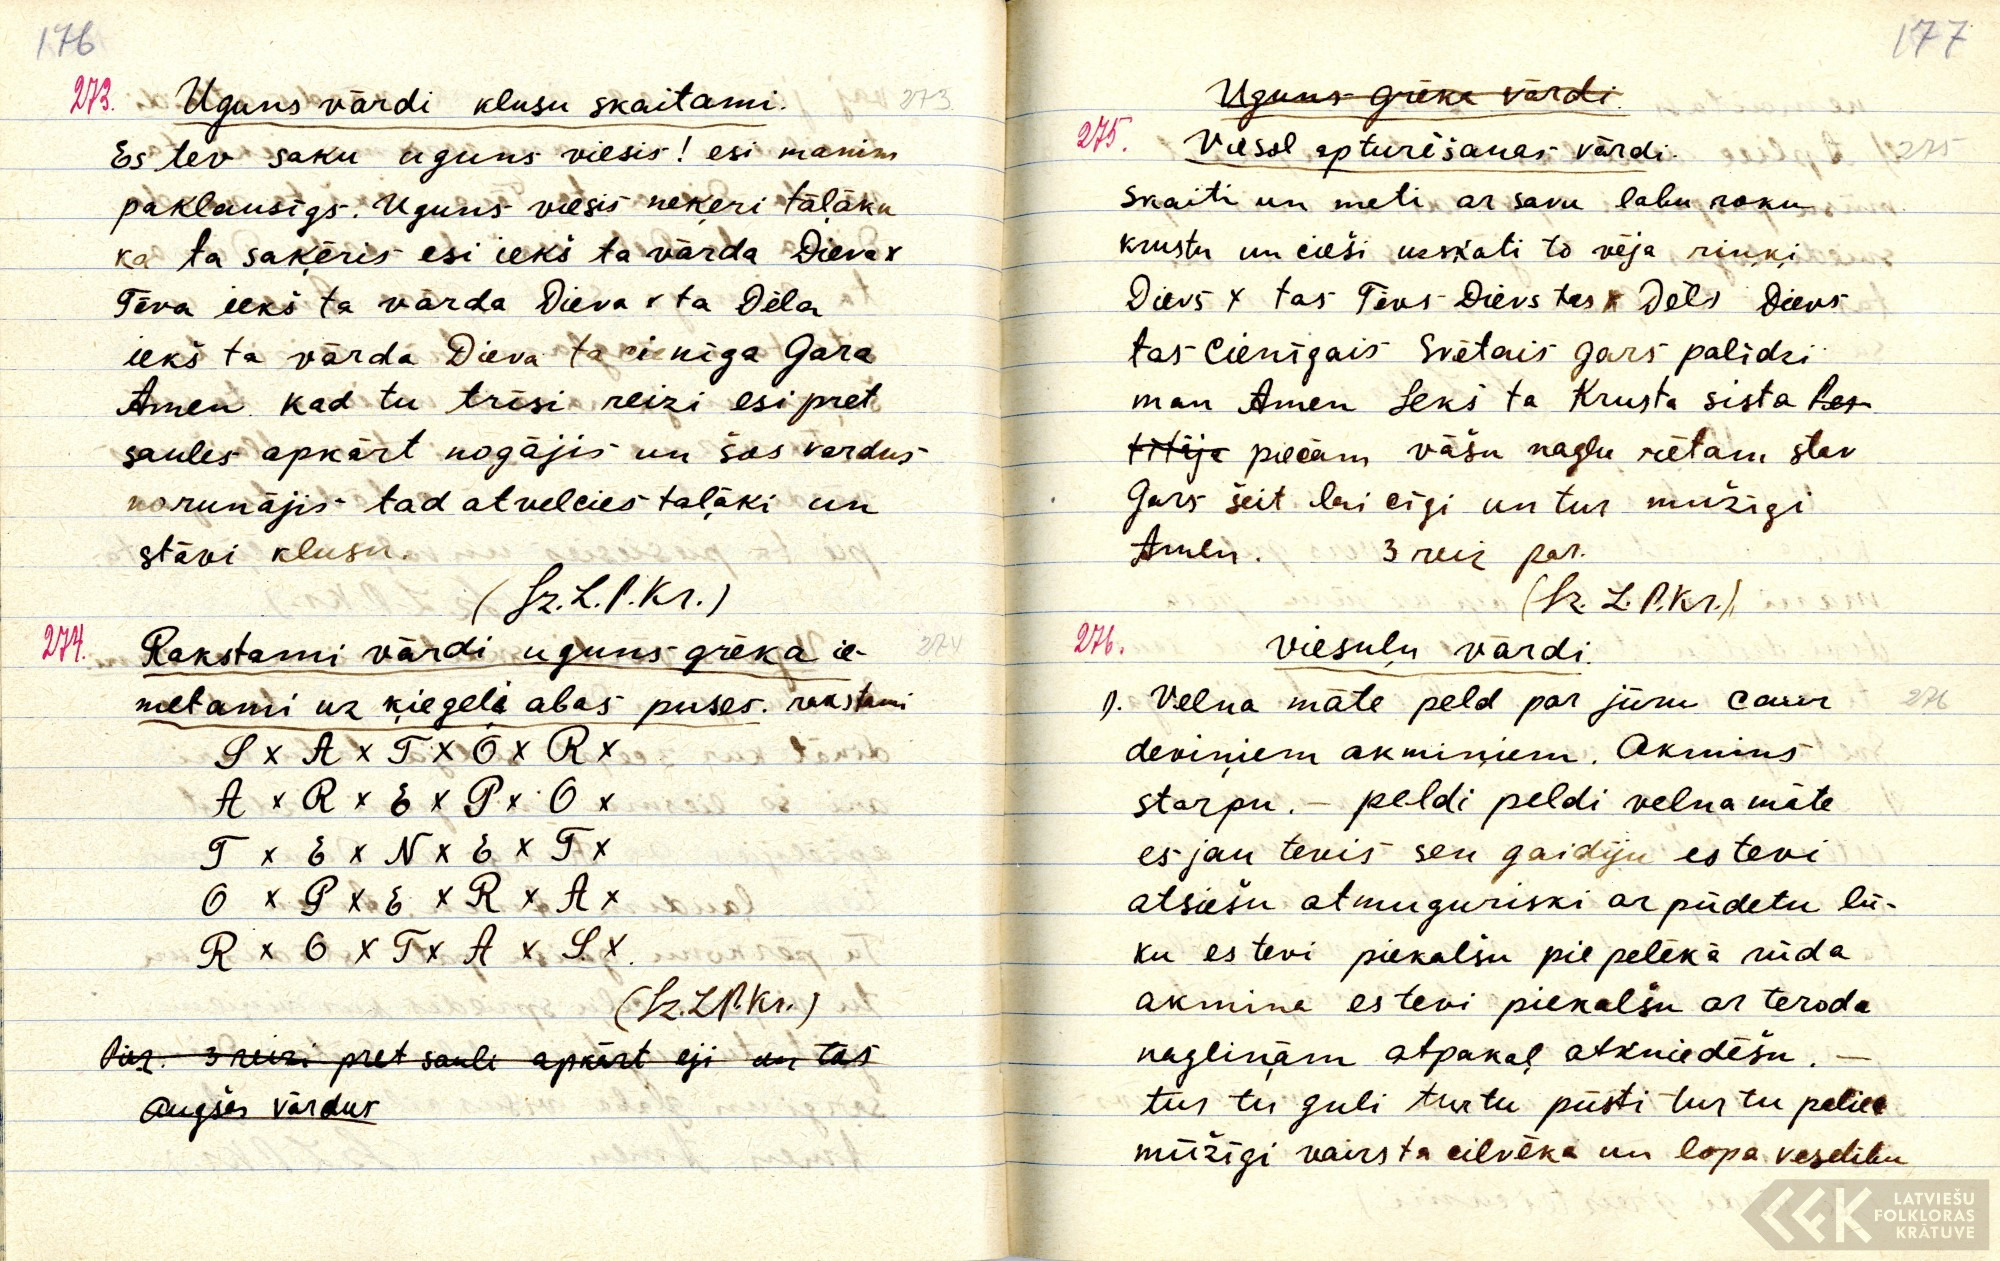 176
273. Uguns vārdi klusu skaitami. 273.
Es tev saku uguns viesis! esi manim
paklausīgs. Uguns viesis neķeri tāļāku
ka ta saķēris esi iekš ta vārda Dieva x
Tēva iekš ta vārda Dieva x ta Dēla
iekš ta vārda Dieva ta cieniga Gara
Amen. Kad tu trīsi reizi esi pret
saules apkārt nogājis un šos vardus
norunājis tad atvelcies taļāki un
stāvi klusu.
(Sz. L. P. Kr.)
274. Rakstami vārdi uguns grēka ie- 274
metami uz ķiegeļa abas puses. rakstami
S x A x T x O x R x
A x R x E x P x O x
T x E x N x E x T x
O x P x E x R x A x
R x O x T x A x S x.
(Sz. L P. Kr.)
3 reizi pret sauli apkārt eji un tas
augšas vārdus
177
Uguns grēka vārdi.
275. Viesol apturēšanas vārdi. 275
Skaiti un meti ar savu labu roku
krustu un cieši uzskati to vēja riņķi
Dievs x tas Tēvs Dievs tas x Dēls Dievs
tas Cienīgais Svētais gars palīdzi
man Amen Iekš ta Krusta sista Pes-
titāja piecām vāšu naglu rētam stav
Gars šeit lai cīgi un tur mūžīgi
Amen. 3 reiz par.
(Sz. L. P. Kr.)
276. Viesuļu vārdi.
1). Velna māte peld par jūru caur 276
deviņiem akmiņiem. Akmins
starpu. – peldi peldi velna māte
es jau tevis sen gaidīju es tevi
atsiešu atmuguriski ar pūdetu lū-
ku es tevi piekalšu pie pelēkā rūda
akmina es tevi piekalšu ar teroda
nagliņām atpakaļ atkniedēšu. –
tur tu guli tur tu pūsti tur tu paliec
mūžīgi vairs ta cilvēka un lopa veselibu
LATVIEŠU
FOLKLORAS
KRĀTUVE